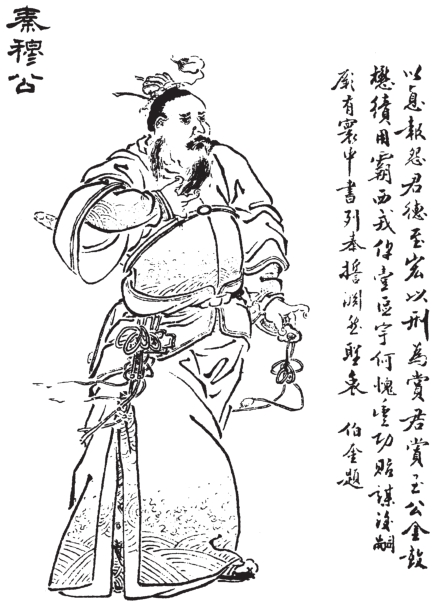 秦穆公
以恩報怨君德至宏以刑為賞君賞至公金鼓
懋績用霸西戎區宇何愧功貽謀後嗣
厥有寰中書列秦誓淵然聖衷 伯金題